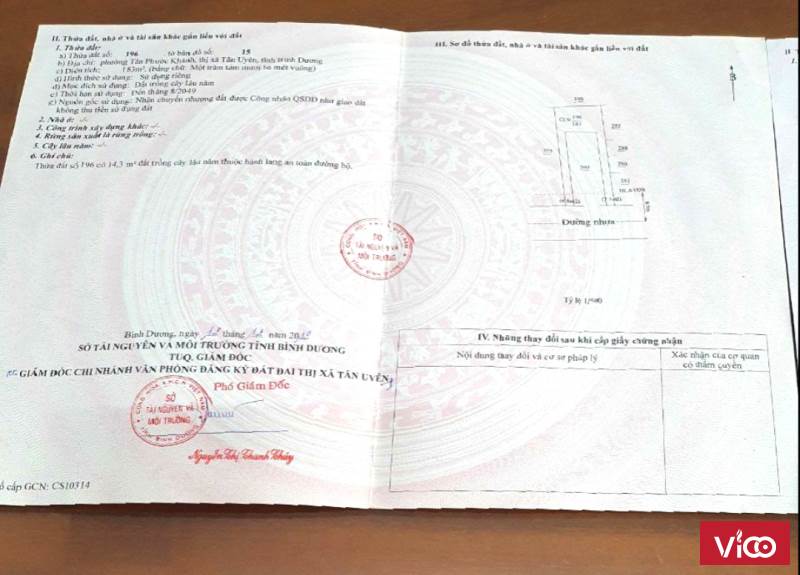 II. Thửa đất, nhà ở và tài sản khác gắn liền với đất
1. Thửa đất:
a) Thửa đất số: 196 tờ bản đồ số: 15
b) Địa chỉ: phường Tân Phước Khánh, thị xã Tân Uyên, tỉnh Bình Dương
c) Diện tích: 183m², (bằng chữ: Một trăm tám mươi ba mét vuông)
d) Hình thức sử dụng: Sử dụng riêng
đ) Mục đích sử dụng: Đất trồng cây lâu năm
e) Thời hạn sử dụng: Đến tháng 8/2049
g) Nguồn gốc sử dụng: Nhận chuyển nhượng đất được Công nhận QSDĐ như giao đất
không thu tiền sử dụng đất
2. Nhà ở: -/-
3. Công trình xây dựng khác: -/-
4. Rừng sản xuất là rừng trồng: -/-
5. Cây lâu năm: -/-
6. Ghi chú:
Thửa đất số 196 có 14,3 m² đất trồng cây lâu năm thuộc hành lang an toàn đường bộ.
Bình Dương, ngày tháng năm
SỞ TÀI NGUYÊN VÀ MÔI TRƯỜNG TỈNH BÌNH DƯƠNG
TUQ. GIÁM ĐỐC
GIÁM ĐỐC CHI NHÁNH VĂN PHÒNG ĐĂNG KÝ ĐẤT ĐAI THỊ XÃ TÂN UYÊN
Phó Giám Đốc
SỞ
TÀI NGUYÊN VÀ
MÔI TRƯỜNG
Nguyễn Thị Thanh Thúy
số cấp GCN: CS10314
III. Sơ đồ thửa đất, nhà ở và tài sản khác gắn liền với đất
CLN 196
183
Đường nhựa
Tỷ lệ 1/500
SỞ
TÀI NGUYÊN VÀ
MÔI TRƯỜNG
IV. Những thay đổi sau khi cấp giấy chứng nhận
Nội dung thay đổi và cơ sở pháp lý
Xác nhận của cơ quan
có thẩm quyền
ViCO